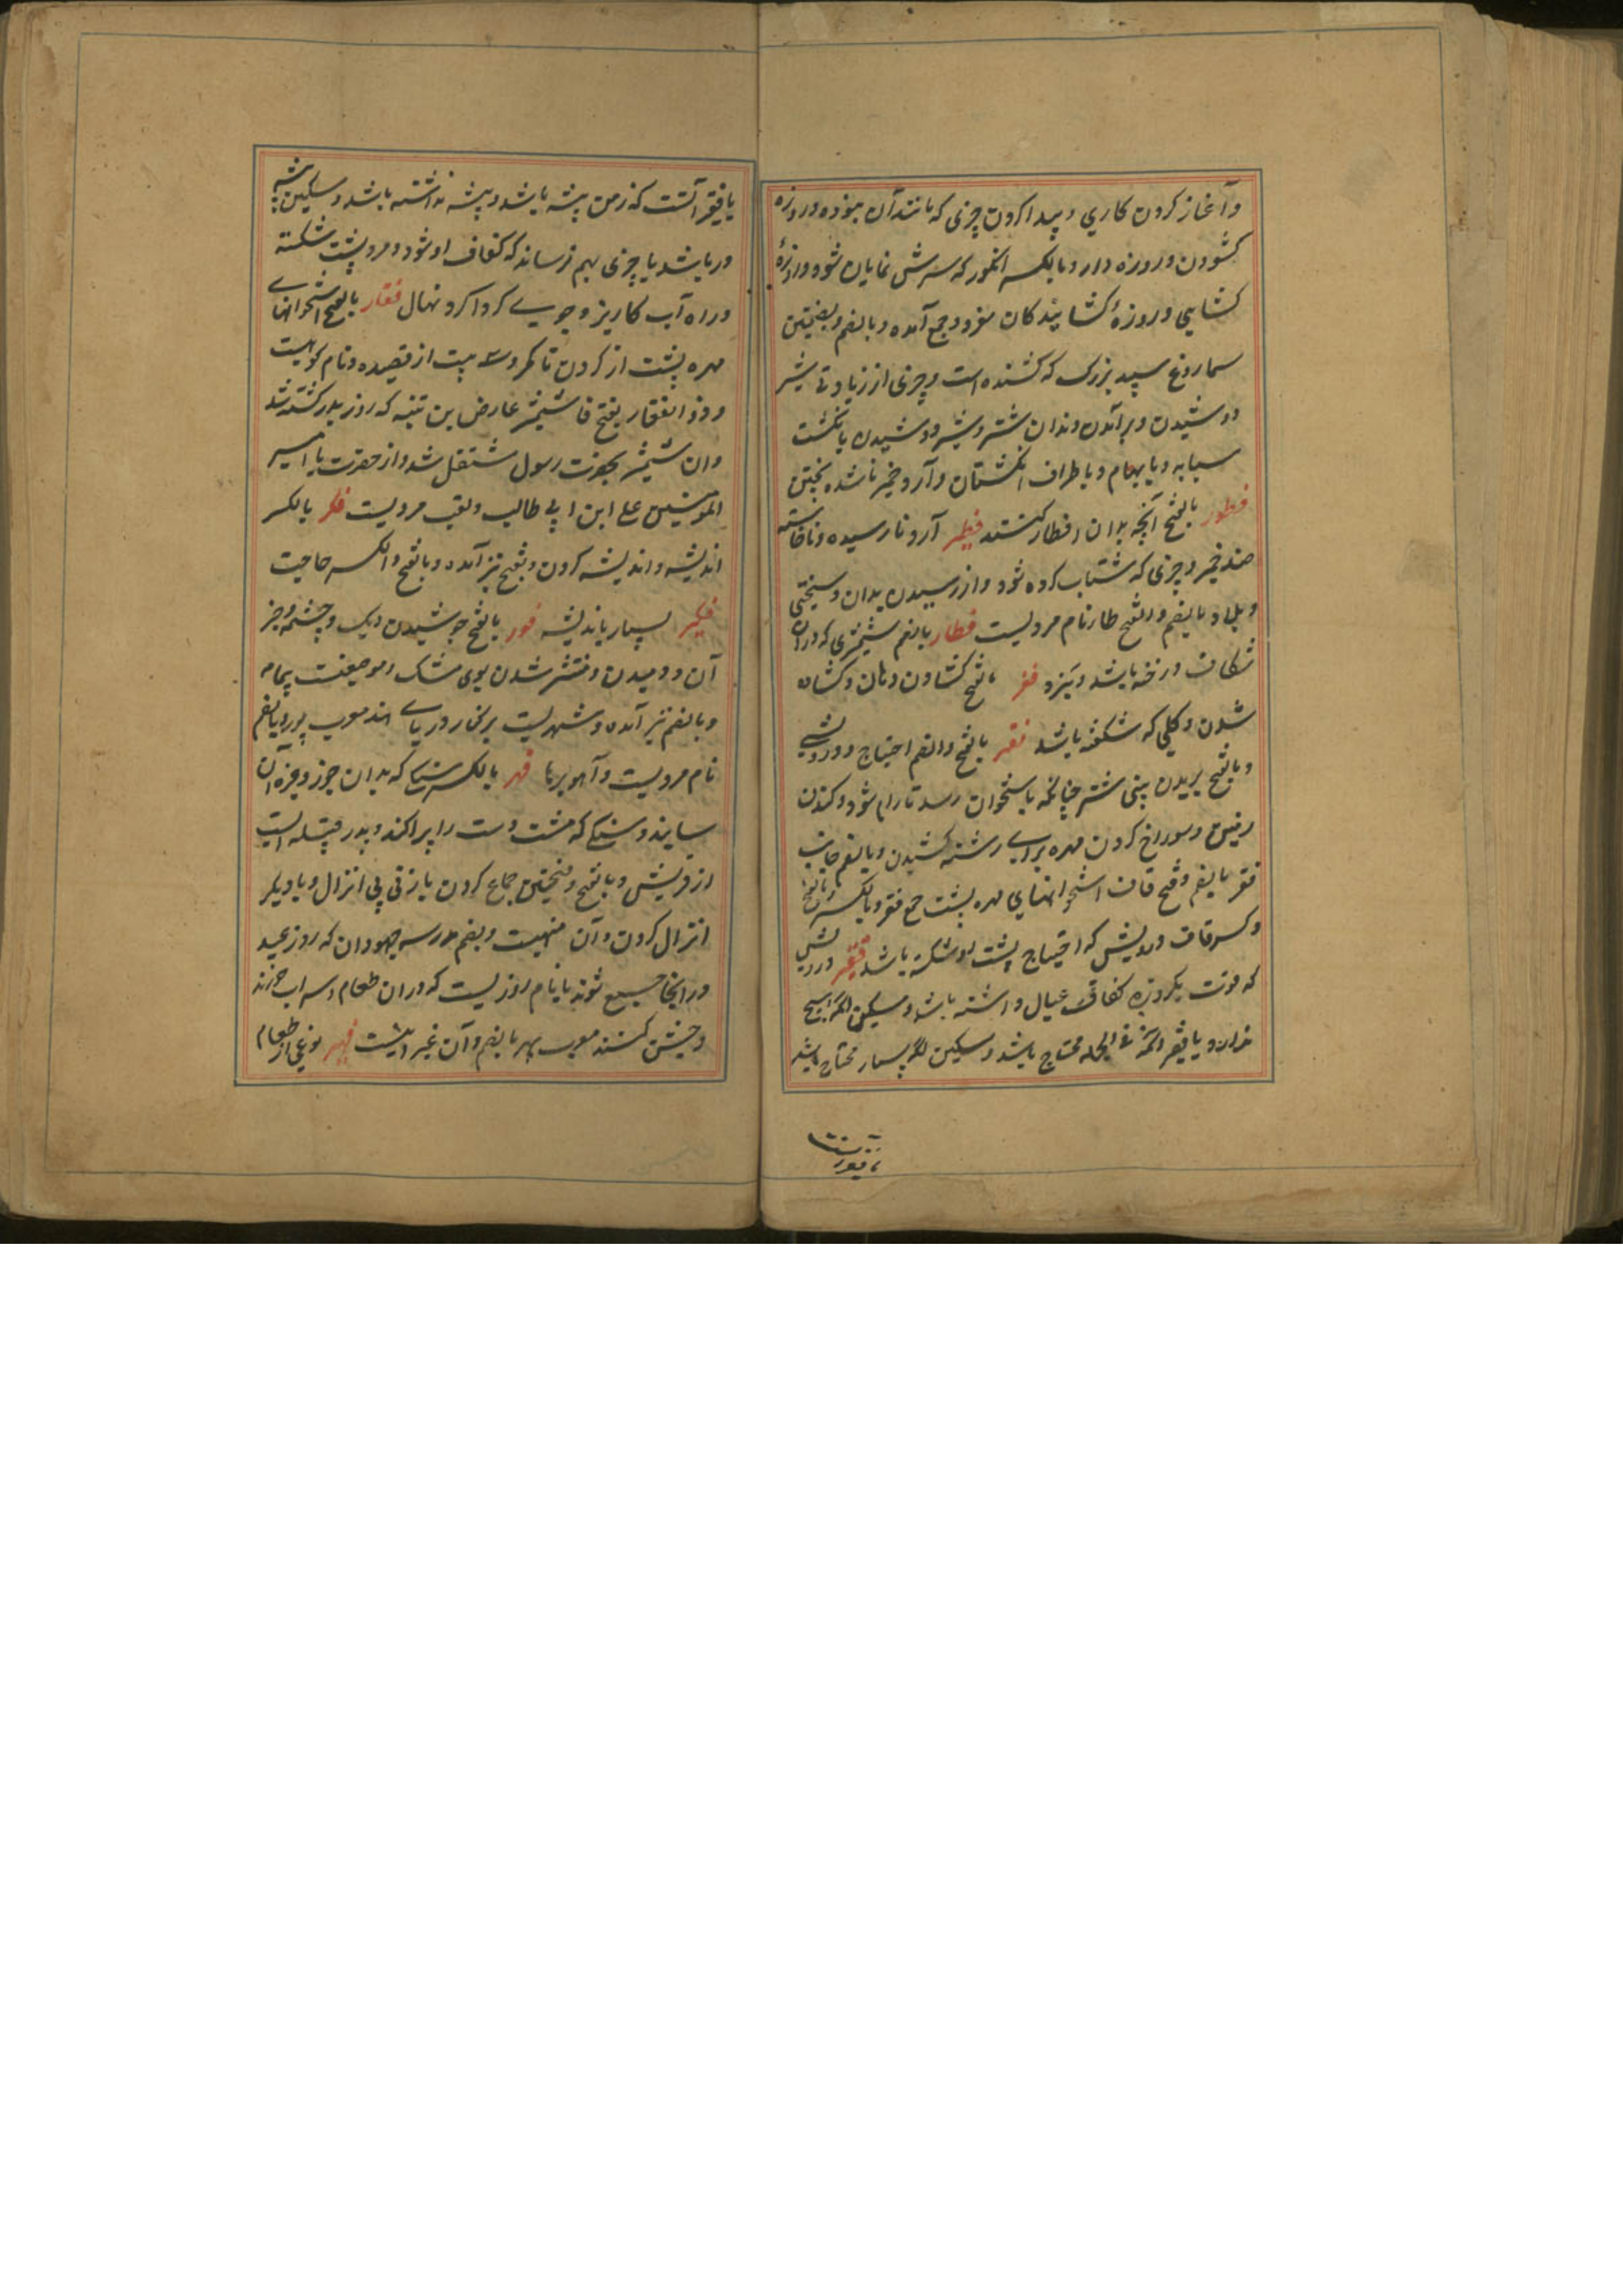 وآغاز کردن کاری و پیدا کردن چیزی که مانند آن نبوده و روزه
کشودن و روزه دار و بالکسر انگور که سرش نمایان شود و روزهٔ
کشایی و روزهٔ کشایندکان مفرد و جمع آمده و بالضم و بضمتین
سماروغ سپید بزرک که کشنده است و چیزی از زیادتی شیر
دوشیدن و برآمدن دندان شتر و شیر دوشیدن بانکشت
سبابه و یا بهام و باطراف انکشتان و آرد خمیر ناشده پختن
فطور بالفتح آنچه بدان افطار کنند فطیر آرد نارسیده و ناخاسته
ضد خمیر و چیزی که شتاب کرده شود و از رسیدن بدان و سختی
و بلا و بالضم و الفتح طا نام مردیست فطار بالضم شمشیری که دران
شکاف و رخنه باشد و نبرد فغر بالفتح کشادن دهان و کشاده
شدن و کلی که شکفته باشد فقر بالفتح و الضم احتیاج و درویشی
و بالفتح بریدن بینی شتر چنانکه باستخوان رسد تا رام شود و کندن
زمین و سوراخ کردن مهره برای رشته کشیدن و بالضم جانب
فقر بالضم و فتح قاف استخوانهای مهره پشت جمع فقره و بالکسر و بالفتح
و کسر قاف درویش که احتیاج پشت او شکسته باشد فقیر درویش
که قوت یکروزه کفاف عیال داشته باشد و مسکین آنکه هیچ
ندارد و یا فقیر آنکه فی الجمله محتاج باشد و مسکین آنکه بسیار محتاج باشد
یا فقیر آنست که زمن
یا فقیر آنست که زمن پیشه باشد و پیشه نداشته باشد و مسکین پیشه
ور باشد یا چیزی بهم نرساند که کفاف او شود و مرد پشت شکسته
و راه آب کاریز و جویی کرداکرد نهال فقار بالفتح استخوانهای
مهره پشت از کردن تا کمر و سه بیت از قصیده و نام کوهیست
و ذوالفقار بفتح فا شمشیر عاص بن منبه که روز بدر کشته شد
و آن شمشیر بحضرت رسول منتقل شد و از حضرت با امیر
المؤمنین علی ابن ابی طالب و لقب مردیست فکر بالکسر
اندیشه و اندیشه کردن و بفتح نیز آمده و بالفتح و الکسر حاجت
فکیر بسیار باندیشه فور بالفتح جوشیدن دیک و چشمه و جز
آن و دمیدن و منتشر شدن بوی مشک و موضعیست بیمامه
و بالضم نیز آمده و شهریست برکنار دریای هند معرب پور و بالضم
نام مردیست و آهو برها فهر بالکسر سنکی که بدان جوز و جز آن
سایند و سنکی که مشت دست را پر کند و پدر قبیله ایست
از قریش و بالفتح و فتحتین جماع کردن با زنی بی انزال و با دیکر
انزال کردن و آن منهیست و بضم مدرسه جهودان که روز عید
در انجا جمیع شوند یا نام روزیست که دران طعام و شراب خورند
و جشن کنند معرب بهر بالضم و آن غیر اینست فهیر نوعی از طعام